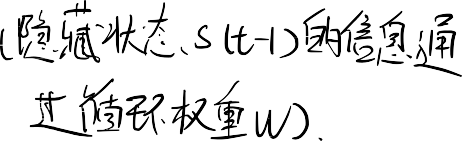 (隐藏状态、S(t-1)的信息,通
过循环权重W).